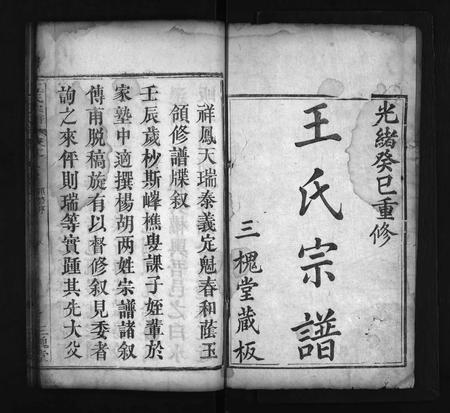 光緒癸巳重修
王氏宗譜
三槐堂藏板
祥鳳天瑞泰義定魁春和蔭玉
領修譜牒叙
壬辰歲杪斯峰樵叟課子姪輩於
家塾中適撰楊胡兩姓宗譜諸叙
傳甫脱稿旋有以督修叙見委者
詢之來伻則瑞等實踵其先大父